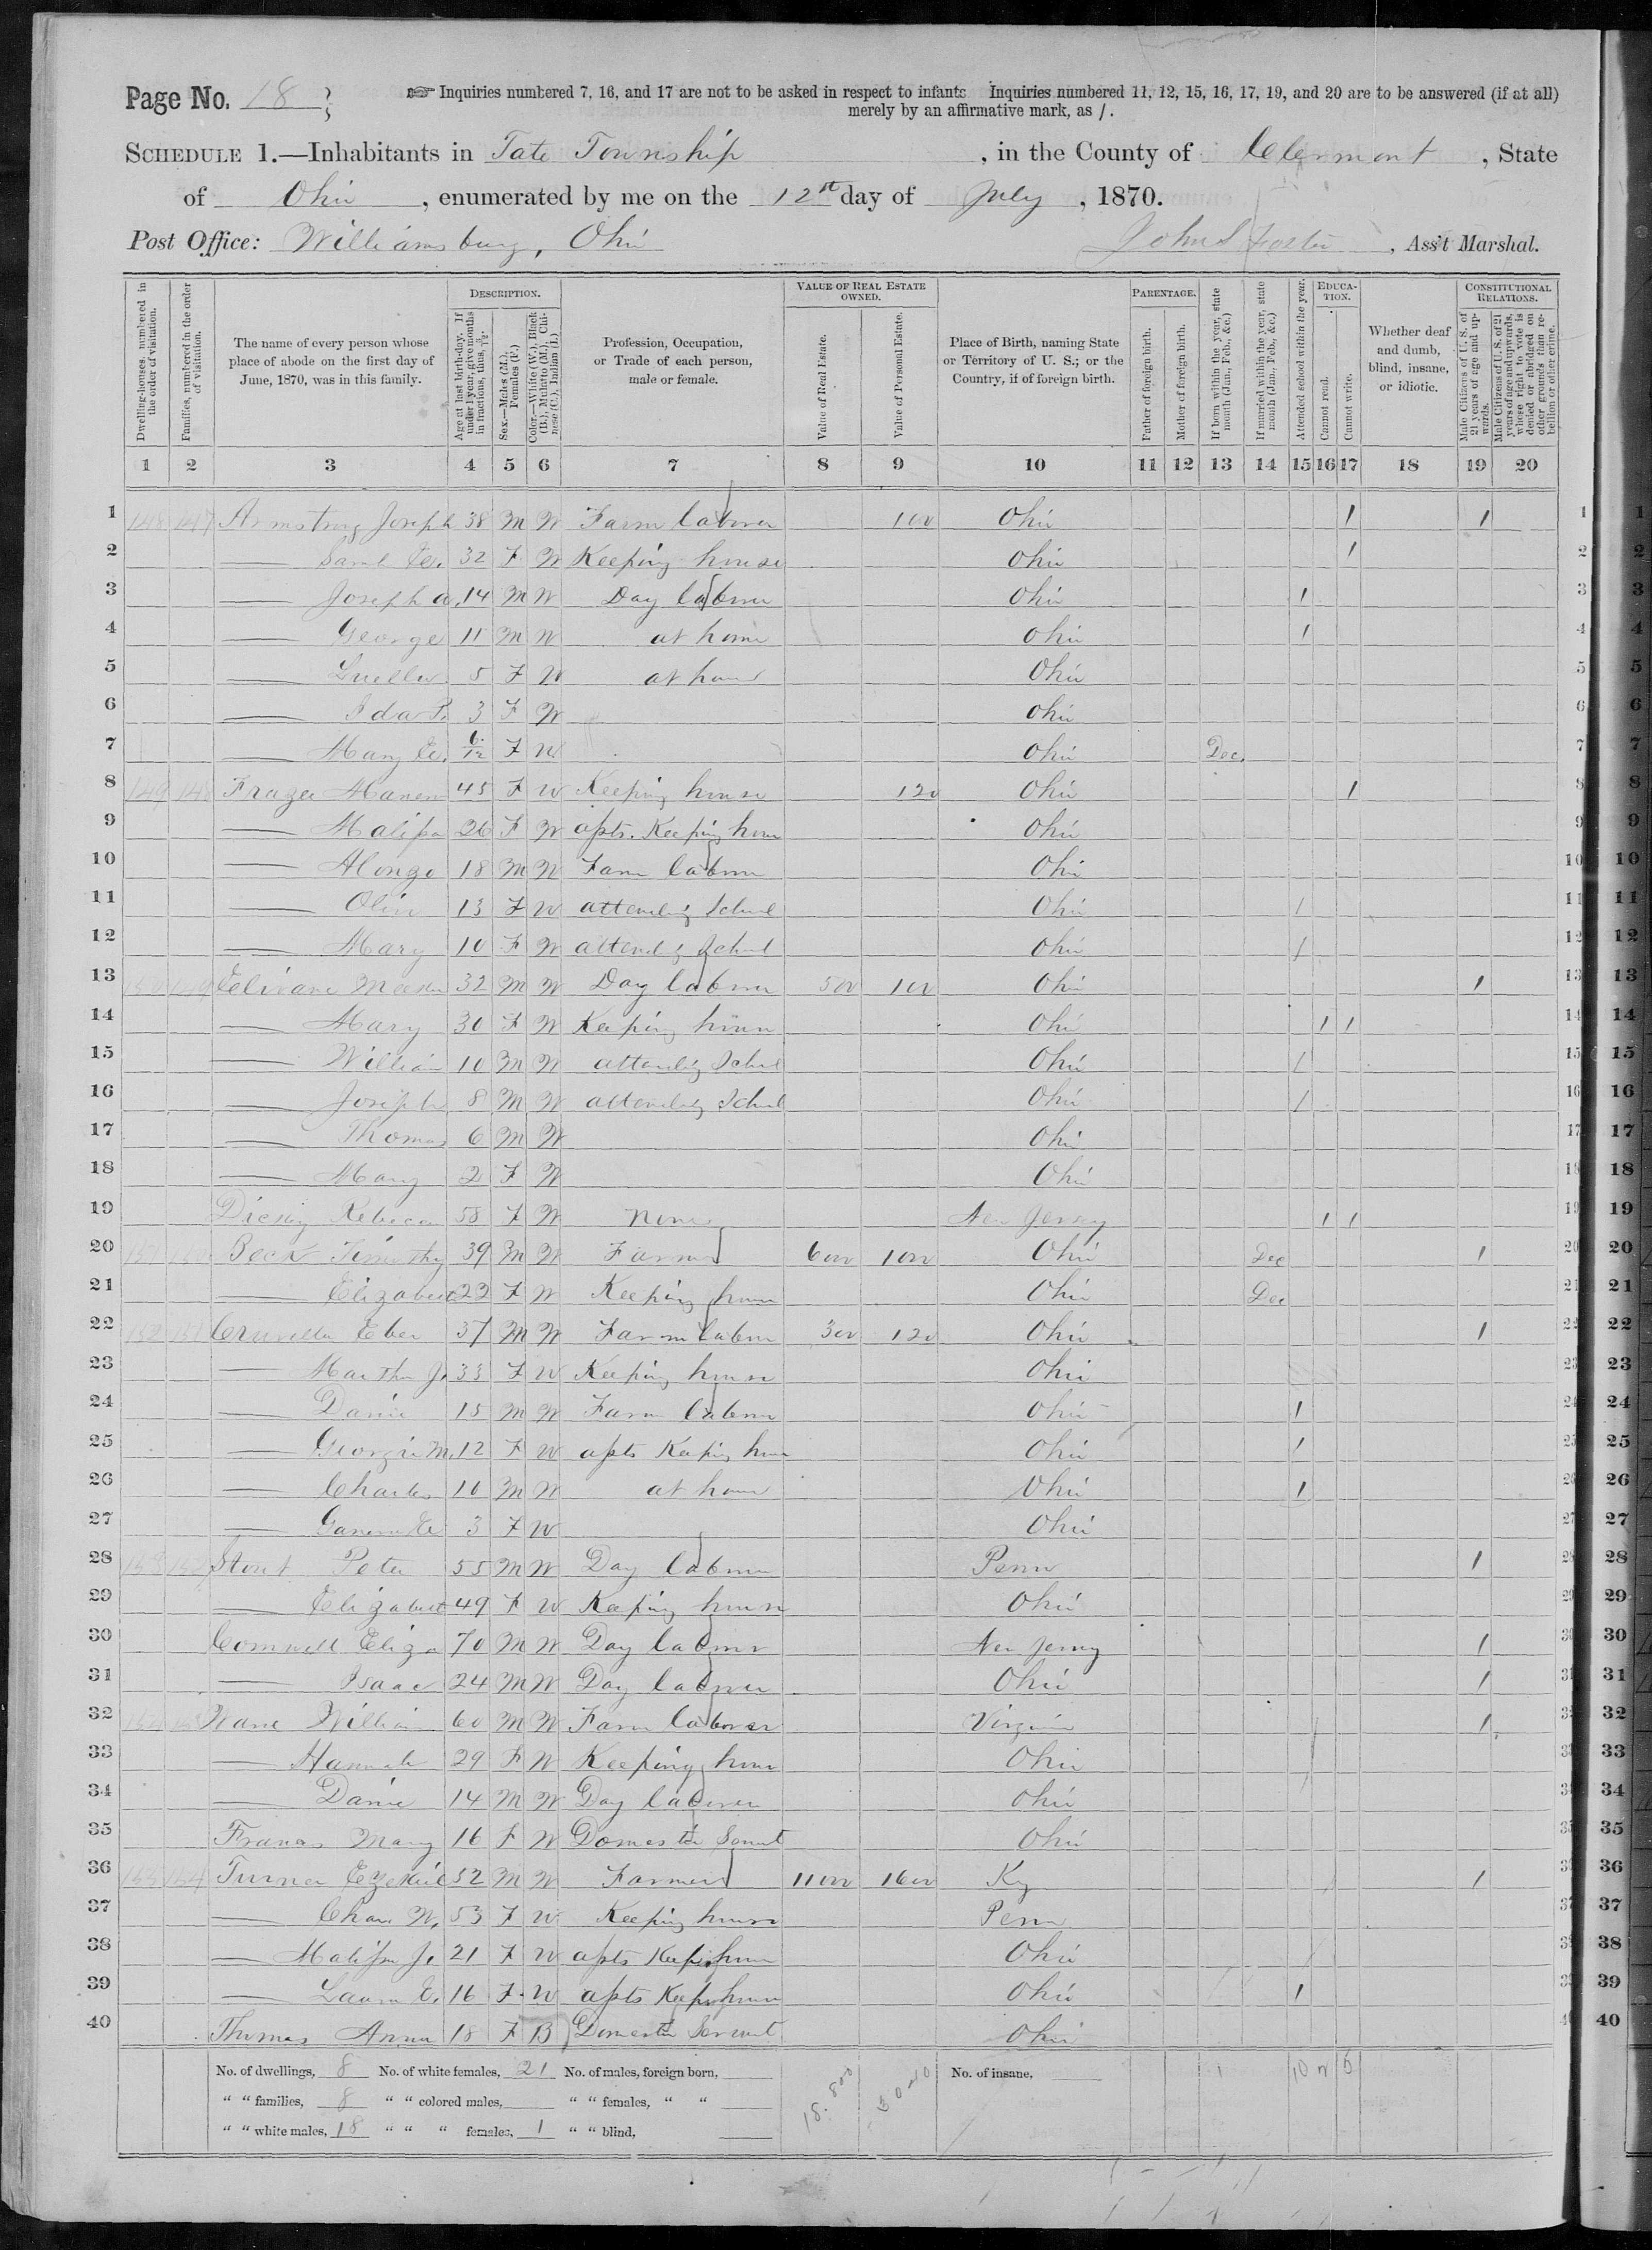 Page No. 18
Inquiries numbered 7, 16, and 17 are not to be asked in respect to infants Inquiries numbered 11, 12, 15, 16, 17, 19, and 20 are to be answered (if at all)
merely by an affirmative mark, as /.
SCHEDULE 1.—Inhabitants in Tate Township, in the County of Clermont, State
of Ohio, enumerated by me on the 12st day of July, 1870.
Post Office: Williamsburg, Ohio John S Foster, Ass't Marshal.
Dwelling-houses, numbered in the order of visitation.
Families, numbered in the order of visitation.
The name of every person whose place of abode on the first day of June, 1870, was in this family.
DESCRIPTION.
Age at last birth-day. If under 1 year, give months in fractions, thus, 3/12.
Sex.—Males (M.), Females (F.)
Color.—White (W.), Black (B.), Mulatto (M.), Chinese (C.), Indian (I.)
Profession, Occupation, or Trade of each person, male or female.
VALUE OF REAL ESTATE OWNED.
Value of Real Estate.
Value of Personal Estate.
Place of Birth, naming State or Territory of U. S.; or the Country, if of foreign birth.
PARENTAGE.
Father of foreign birth.
Mother of foreign birth.
If born within the year, state month (Jan., Feb., &c.)
If married within the year, state month (Jan., Feb., &c.)
Attended school within the year.
EDUCATION.
Cannot read.
Cannot write.
Whether deaf and dumb, blind, insane, or idiotic.
CONSTITUTIONAL RELATIONS.
Male Citizens of U. S. of 21 years of age and upwards.
Male Citizens of U. S. of 21 years of age and upwards, whose right to vote is denied or abridged on other grounds than rebellion or other crime.
1 2 3 4 5 6 7 8 9 10 11 12 13 14 15 16 17 18 19 20
1 148 147 Armstrong Joseph 38 M W Farm laborer 100 Ohio 1 1 1
2 — 32 F W Keeping house Ohio 1 2
3 — Joseph A. 14 M W Day laborer Ohio 1 3
4 — George 11 M W at home Ohio 1 4
5 — Luella 5 F W at home Ohio 5
6 — Ida 3 F W Ohio 6
7 — Mary E. 6/12 F W Ohio Dec. 7
8 149 148 Frazee 45 F W Keeping house 120 Ohio 1 8
9 — Malissa 26 F W apts. Keeping house Ohio 9
10 — Alonzo 18 M W Farm laborer Ohio 10
11 — Olive 13 F W attending School Ohio / 11
12 — Mary 10 F W attending School Ohio / 12
13 150 149 32 M W Day laborer 500 100 Ohio 1 13
14 — Mary 30 F W Keeping house Ohio 1 1 14
15 — William 10 M W attending School Ohio / 15
16 — Joseph 8 M W attending School Ohio / 16
17 — Thomas 6 M W Ohio 17
18 — Mary 2 F W Ohio 18
19 Rebecca 58 F W None New Jersey 1 1 19
20 151 150 Beck Timothy 39 M W Farmer 6000 1000 Ohio Dec 1 20
21 — Elizabeth 22 F W Keeping house Ohio Dec 21
22 152 151 Eber 37 M W Farm laborer 300 120 Ohio 1 22
23 — Martha J. 33 F W Keeping house Ohio 23
24 — 15 M W Farm laborer Ohio 1 24
25 — Georgia M. 12 F W apts Keeping house Ohio 1 25
26 — Charles 10 M W at home Ohio 1 26
27 — 3 F W Ohio 27
28 Stout Peter 55 M W Day laborer Penn 1 28
29 — Elizabeth 49 F W Keeping house Ohio 29
30 70 M W Day laborer New Jersey 1 30
31 — Isaac 24 M W Day laborer Ohio 1 31
32 William 60 M W Farm laborer Virginia 1 32
33 — Hannah 29 F W Keeping house Ohio 33
34 — 14 M W Day laborer Ohio 34
35 Mary 16 F W Domestic Servant Ohio 35
36 Turner Ezekiel 52 M W Farmer 11000 1600 Ky 1 36
37 — 53 F W Keeping house Penn 37
38 — Malissa J. 21 F W apts Keeping house Ohio 38
39 — Laura E. 16 F W apts Keeping house Ohio 1 39
40 Thomas Anna 18 F B Domestic Servant Ohio 40
No. of dwellings, 8 No. of white females, 21 No. of males, foreign born, No. of insane,
" " families, 8 " " colored males, " " females, " "
" " white males, 18 " " " females, 1 " " blind,